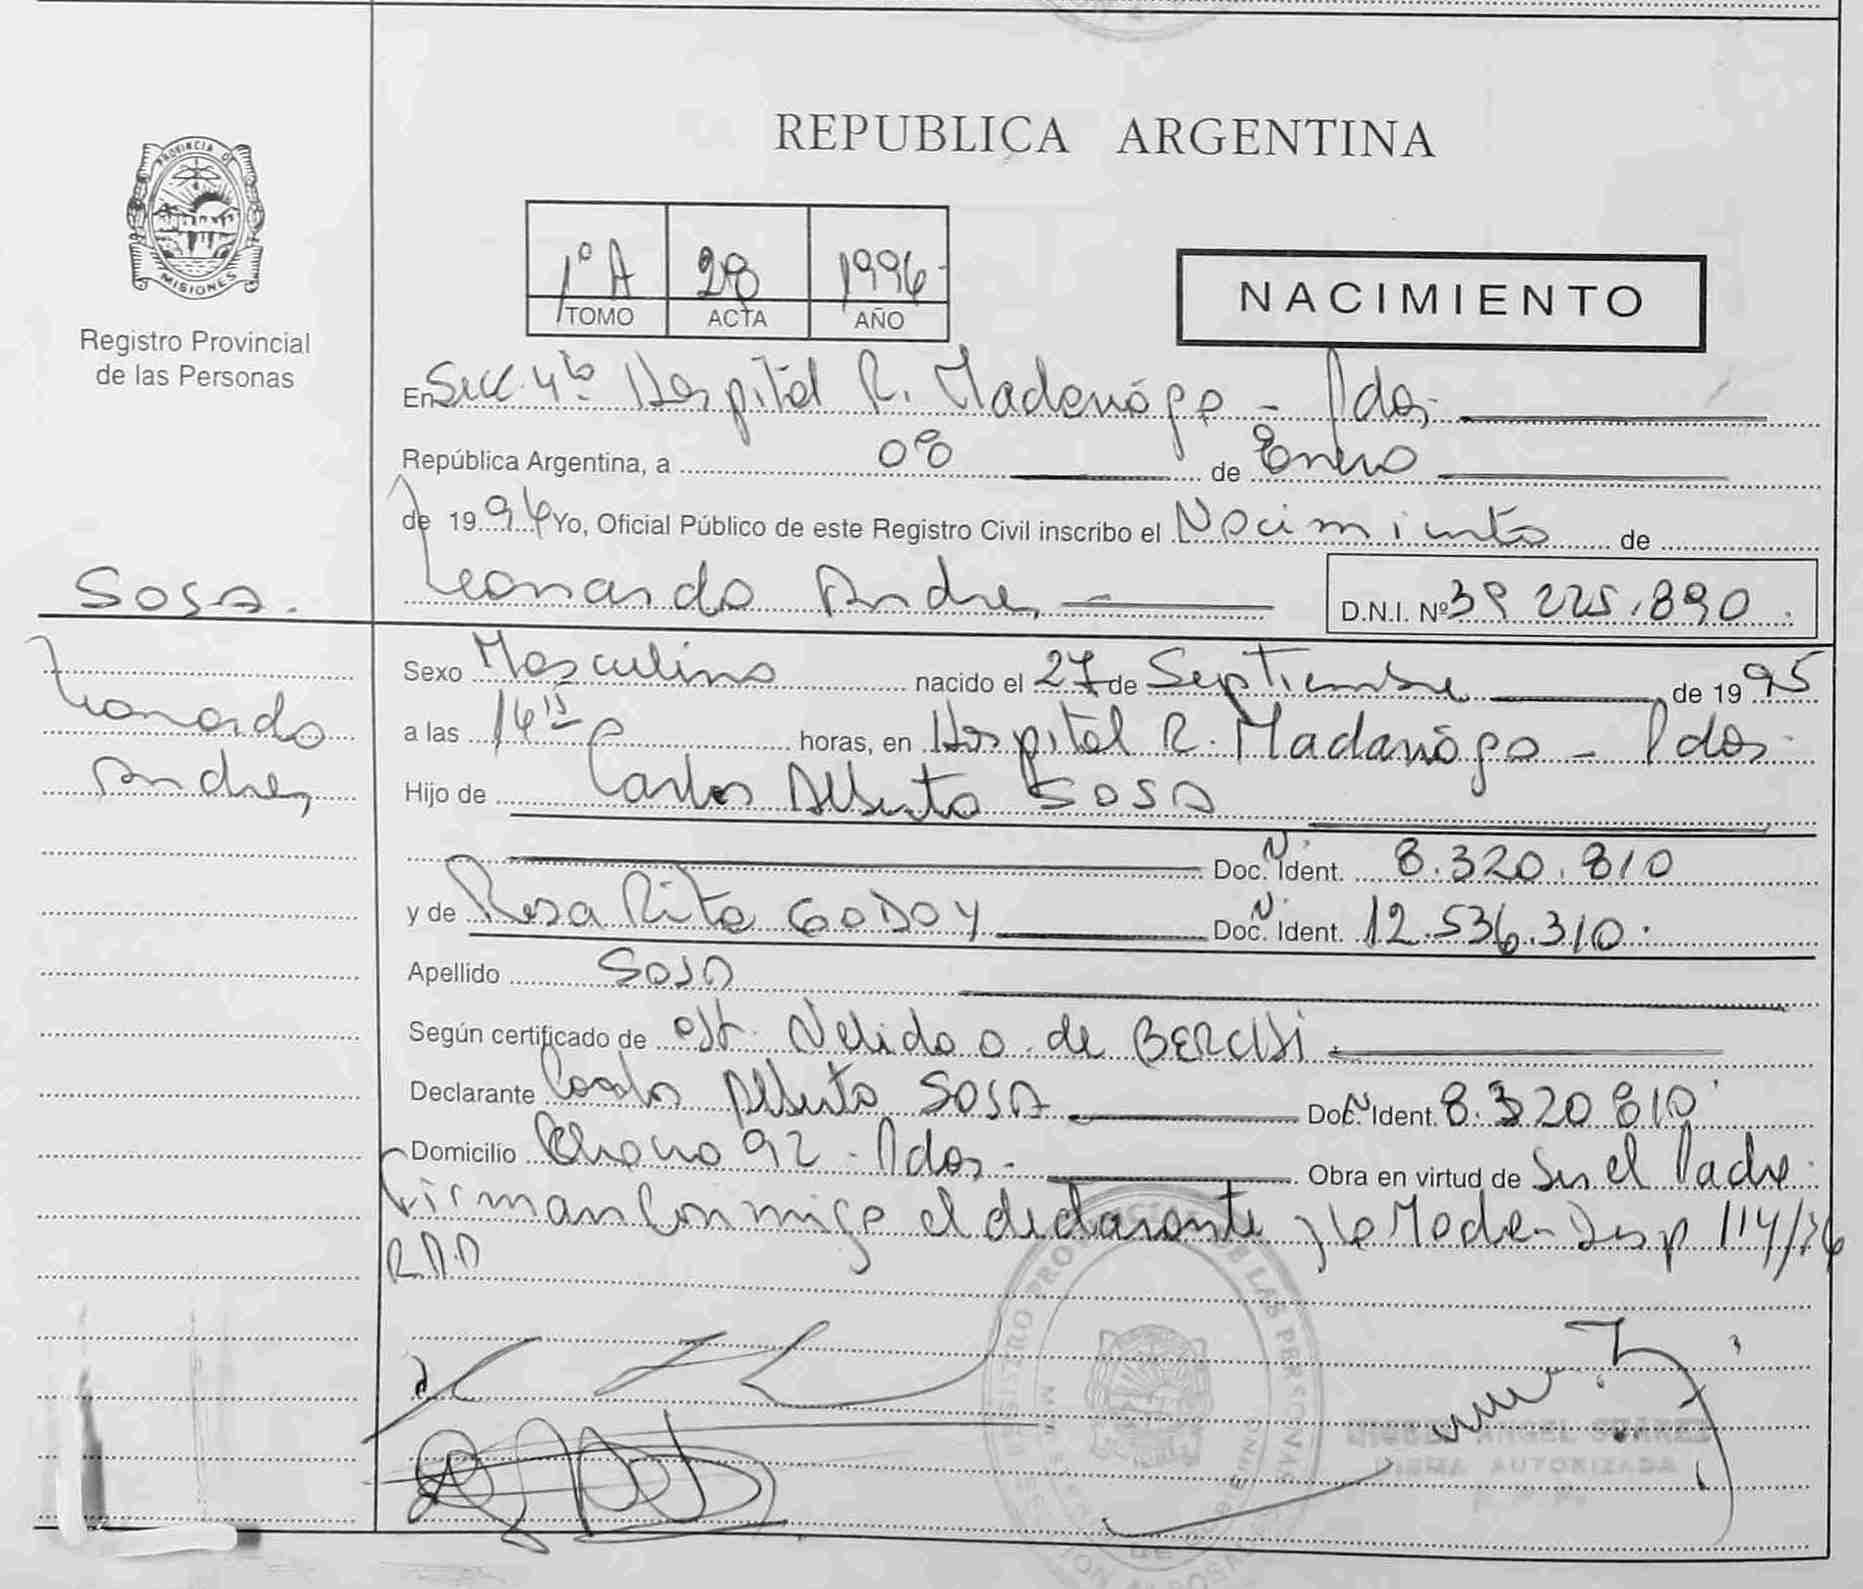 PROVINCIA DE
MISIONES
Registro Provincial
de las Personas
REPUBLICA ARGENTINA
1º A 28 1996
TOMO ACTA AÑO
NACIMIENTO
En Secc. 4ta Hospital R. Madariaga - Pdas.
República Argentina, a 08 de Enero
de 1996 Yo, Oficial Público de este Registro Civil inscribo el Nacimiento de
SOSA.
Leonardo Andres
D.N.I. Nº 39 225.890.
Leonardo
Andres
Sexo Masculino nacido el 27 de Septiembre de 1995
a las 14 15 horas, en Hospital R. Madariaga - Pdas.
Hijo de Carlos Alberto SOSA
Doc. N. Ident. 8.320.810
y de Rosa Rita GODOY Doc. N. Ident. 12.536.310.
Apellido SOSA
Según certificado de Obst. Nelida O. de
Declarante Carlos Alberto SOSA Doc. N Ident. 8.320.810
Domicilio Chaco 92 - Pdas. - Obra en virtud de Ser el Padre
Firman Conmigo el declarante y la Madre - Disp 114/96
REGISTRO PROVINCIAL DE LAS PERSONAS
MIGUEL ANGEL SUAREZ
FIRMA AUTORIZADA